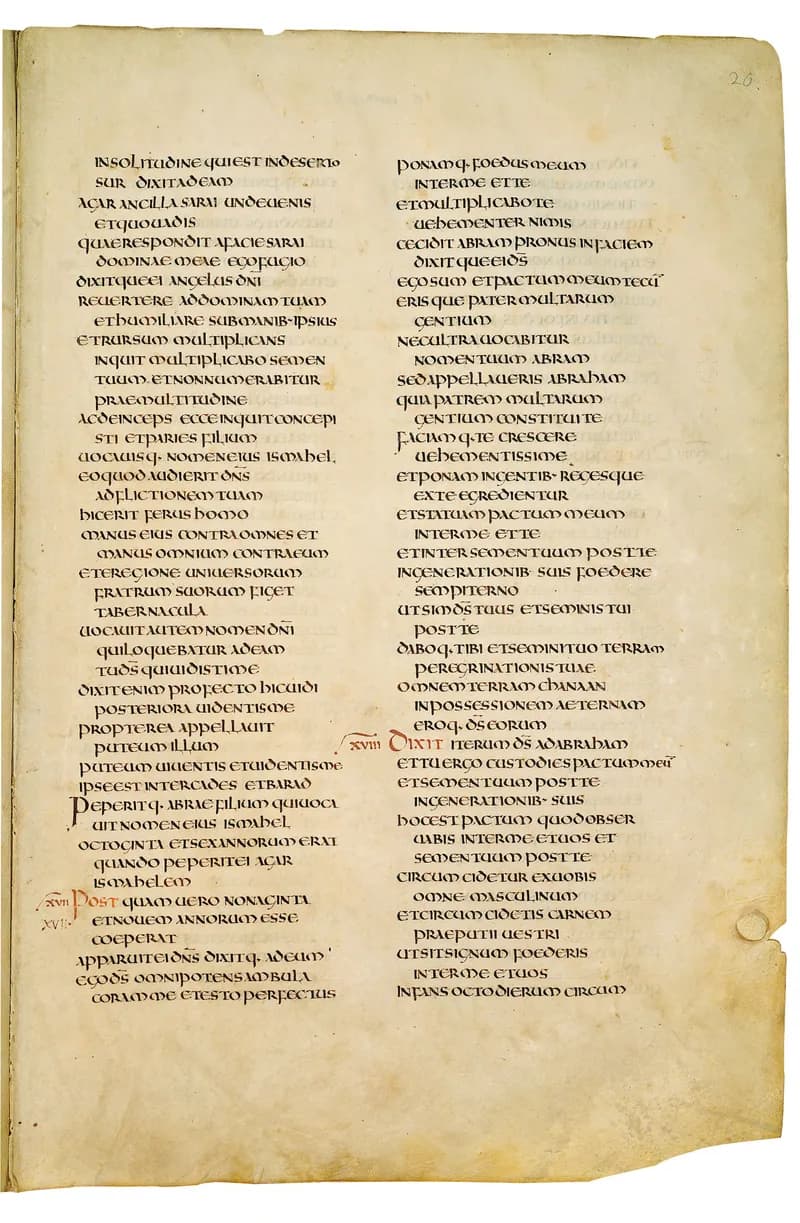 26
INSOLITUDINE QUI EST INDESERTO
SUR DIXIT AD EAM
AGAR ANCILLA SARAI UNDE UENIS
ET QUO UADIS
QUAE RESPONDIT A FACIE SARAI
DOMINAE MEAE EGO FUGIO
DIXITQUE EI ANGELUS DNĪ
REUERTERE AD DOMINAM TUAM
ET HUMILIARE SUB MANIB· IPSIUS
ET RURSUM MULTIPLICANS
INQUIT MULTIPLICABO SEMEN
TUUM ET NON NUMERABITUR
PRAE MULTITUDINE
AC DEINCEPS ECCE INQUIT CONCEPI
STI ET PARIES FILIUM
UOCAUISQ· NOMEN EIUS ISMAHEL
EO QUOD AUDIERIT DN̄S
ADFLICTIONEM TUAM
HIC ERIT FERUS HOMO
MANUS EIUS CONTRA OMNES ET
MANUS OMNIUM CONTRA EUM
ET E REGIONE UNIUERSORUM
FRATRUM SUORUM FIGET
TABERNACULA
UOCAUIT AUTEM NOMEN DNĪ
QUI LOQUEBATUR AD EAM
TU DS̄ QUI UIDISTI ME
DIXIT ENIM PROFECTO HIC UIDI
POSTERIORA UIDENTIS ME
PROPTEREA APPELLAUIT
PUTEUM ILLUM
PUTEUM UIUENTIS ET UIDENTIS ME
IPSE EST INTER CADES ET BARAD
PEPERITQ· ABRAE FILIUM QUI UOCA
UIT NOMEN EIUS ISMAHEL
OCTOGINTA ET SEX ANNORUM ERAT
QUANDO PEPERIT EI AGAR
ISMAHELEM
XVII POSTQUAM UERO NONAGINTA
XVII ET NOUEM ANNORUM ESSE
COEPERAT
APPARUIT EI DN̄S DIXITQ· AD EUM
EGO DS̄ OMNIPOTENS AMBULA
CORAM ME ET ESTO PERFECTUS
PONAMQ· FOEDUS MEUM
INTER ME ET TE
ET MULTIPLICABO TE
UEHEMENTER NIMIS
CECIDIT ABRAM PRONUS IN FACIEM
DIXITQUE EI DS̄
EGO SUM ET PACTUM MEUM TECŪ
ERISQUE PATER MULTARUM
GENTIUM
NEC ULTRA UOCABITUR
NOMEN TUUM ABRAM
SED APPELLAUERIS ABRAHAM
QUIA PATREM MULTARUM
GENTIUM CONSTITUI TE
FACIAMQ· TE CRESCERE
UEHEMENTISSIME
ET PONAM IN GENTIB· REGESQUE
EX TE EGREDIENTUR
ET STATUAM PACTUM MEUM
INTER ME ET TE
ET INTER SEMEN TUUM POST TE
IN GENERATIONIB· SUIS FOEDERE
SEMPITERNO
UT SIM DS̄ TUUS ET SEMINIS TUI
POST TE
DABOQ· TIBI ET SEMINI TUO TERRAM
PEREGRINATIONIS TUAE
OMNEM TERRAM CHANAAN
IN POSSESSIONEM AETERNAM
EROQ· DS̄ EORUM
XVIII DIXIT ITERUM DS̄ AD ABRAHAM
ET TU ERGO CUSTODIES PACTUM MEŪ
ET SEMEN TUUM POST TE
IN GENERATIONIB· SUIS
HOC EST PACTUM QUOD OBSER
UABIS INTER ME ET UOS ET
SEMEN TUUM POST TE
CIRCUMCIDETUR EX UOBIS
OMNE MASCULINUM
ET CIRCUMCIDETIS CARNEM
PRAEPUTII UESTRI
UT SIT SIGNUM FOEDERIS
INTER ME ET UOS
INFANS OCTO DIERUM CIRCUM